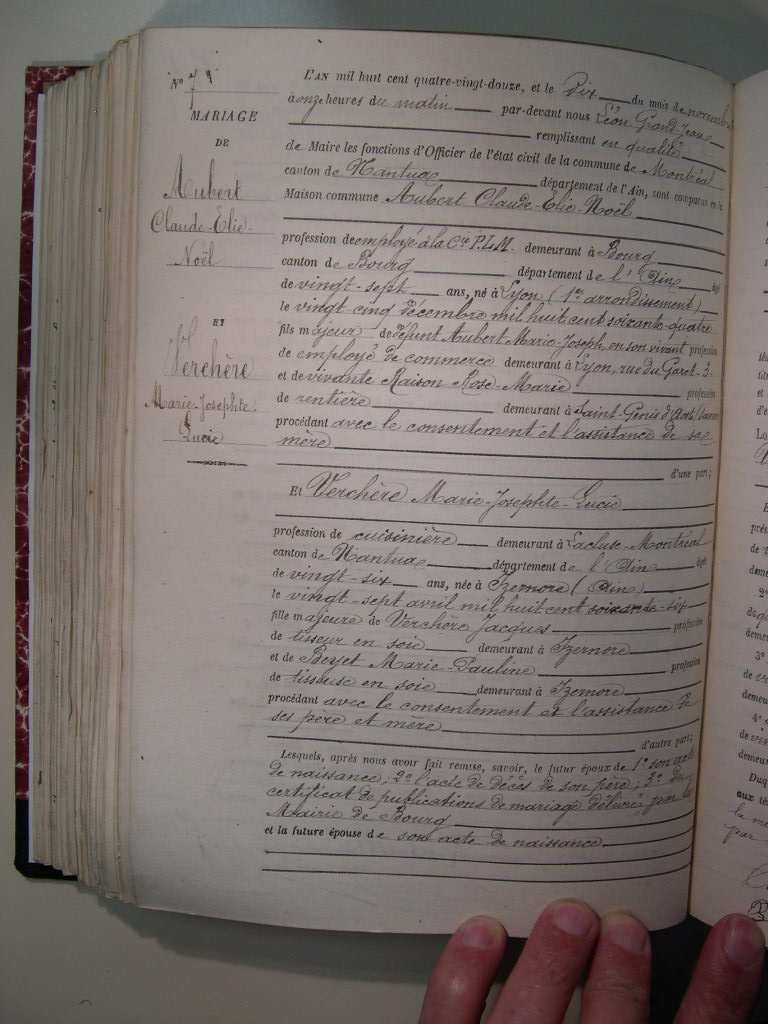 No 9
MARIAGE
DE
Aubert
Claude-Élie-
Noël
ET
Verchère
Marie-Josephte-
Lucie
L'AN mil huit cent quatre-vingt-douze, et le Dix du mois de novembre
à onze heures du matin par-devant nous Léon Grandjean
remplissant en qualité
de Maire les fonctions d'Officier de l'état civil de la commune de Montréal
canton de Nantua département de l'Ain, sont comparus en la
Maison commune Aubert Claude-Élie-Noël
profession de employé à la Cie P.L.M. demeurant à Bourg
canton de Bourg département de l'Ain âgé
de vingt-sept ans, né à Lyon (1er arrondissement)
le vingt cinq décembre mil huit cent soixante-quatre
fils majeur de défunt Aubert Marie-Joseph, en son vivant profession
de employé de commerce demeurant à Lyon, rue du Garet-3-
et de vivante Raison Rose-Marie profession
de rentière demeurant à Saint-Genis d'Aost
procédant avec le consentement et l'assistance de sa
mère
d'une part;
Et Verchère Marie-Josephte-Lucie
profession de cuisinière demeurant à Lacluse-Montréal
canton de Nantua département de l'Ain âgé
de vingt-six ans, née à Izernore (Ain)
le vingt-sept avril mil huit cent soixante-six
fille majeure de Verchère Jacques profession
de tisseur en soie demeurant à Izernore
et de Beyset Marie-Pauline profession
de tisseuse en soie demeurant à Izernore
procédant avec le consentement et l'assistance de
ses père et mère
d'autre part;
Lesquels, après nous avoir fait remise, savoir, le futur époux de 1° son acte
de naissance; 2° l'acte de décès de son père; 3° du
certificat de publications de mariage délivré par la
Mairie de Bourg
et la future épouse de son acte de naissance